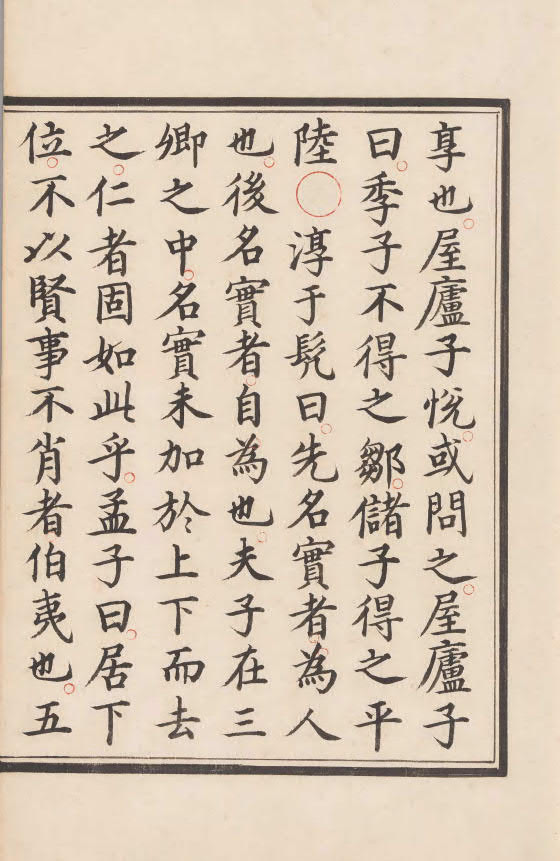 享也。屋廬子悅。或問之。屋廬子
曰。季子不得之鄒。儲子得之平
陸〇淳于髡曰。先名實者。為人
也。後名實者。自為也。夫子在三
卿之中。名實未加於上下而去
之。仁者固如此乎。孟子曰。居下
位。不以賢事不肖者伯夷也。五